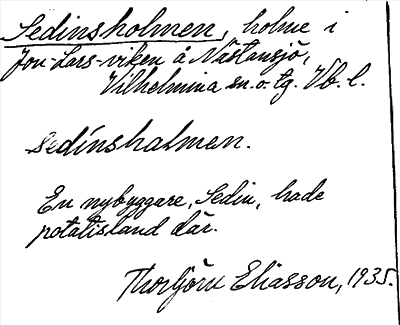 Sedinsholmen, holme i
Jon-Lars-viken å Nästansjö,
Vilhelmina sn. o. tg. Vb. l.
sedínshalmen.
En nybyggare, Sedin, hade
potatisland där.
Thorbjörn Eliasson, 1935.